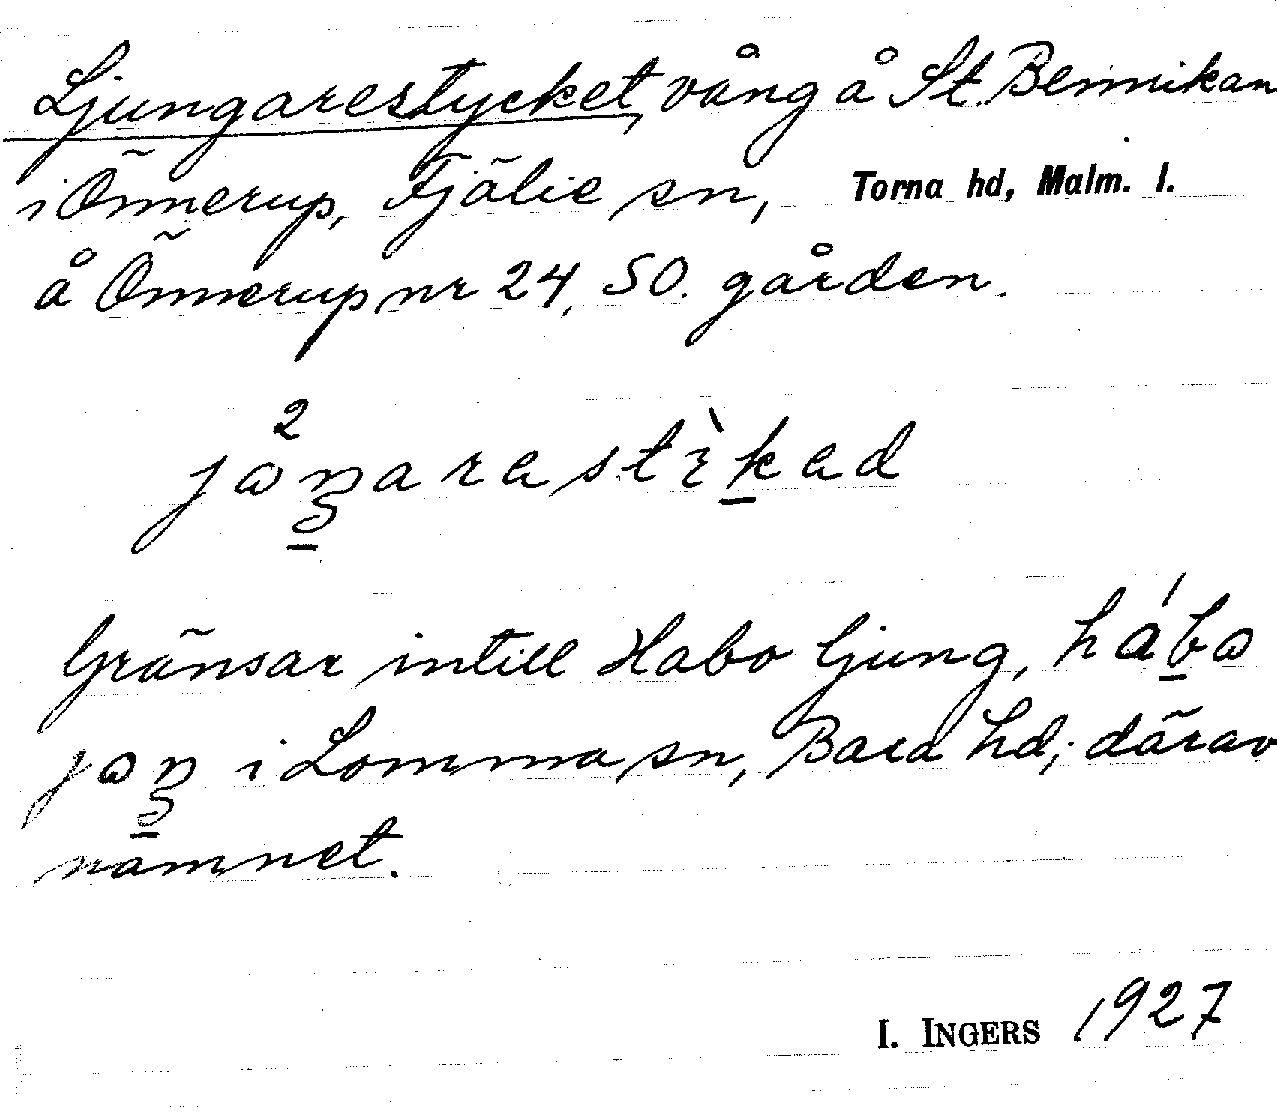 Ljungarestycket, vång å St. Bennikan
i Önnerup, Fjälie sn, Torna hd, Malm. l.
å Önnerup nr 24, SO. gården.
Gränsar intill Habo ljung, håbo
i Lomma sn, Bara hd; därav
namnet.
I. INGERS 1927